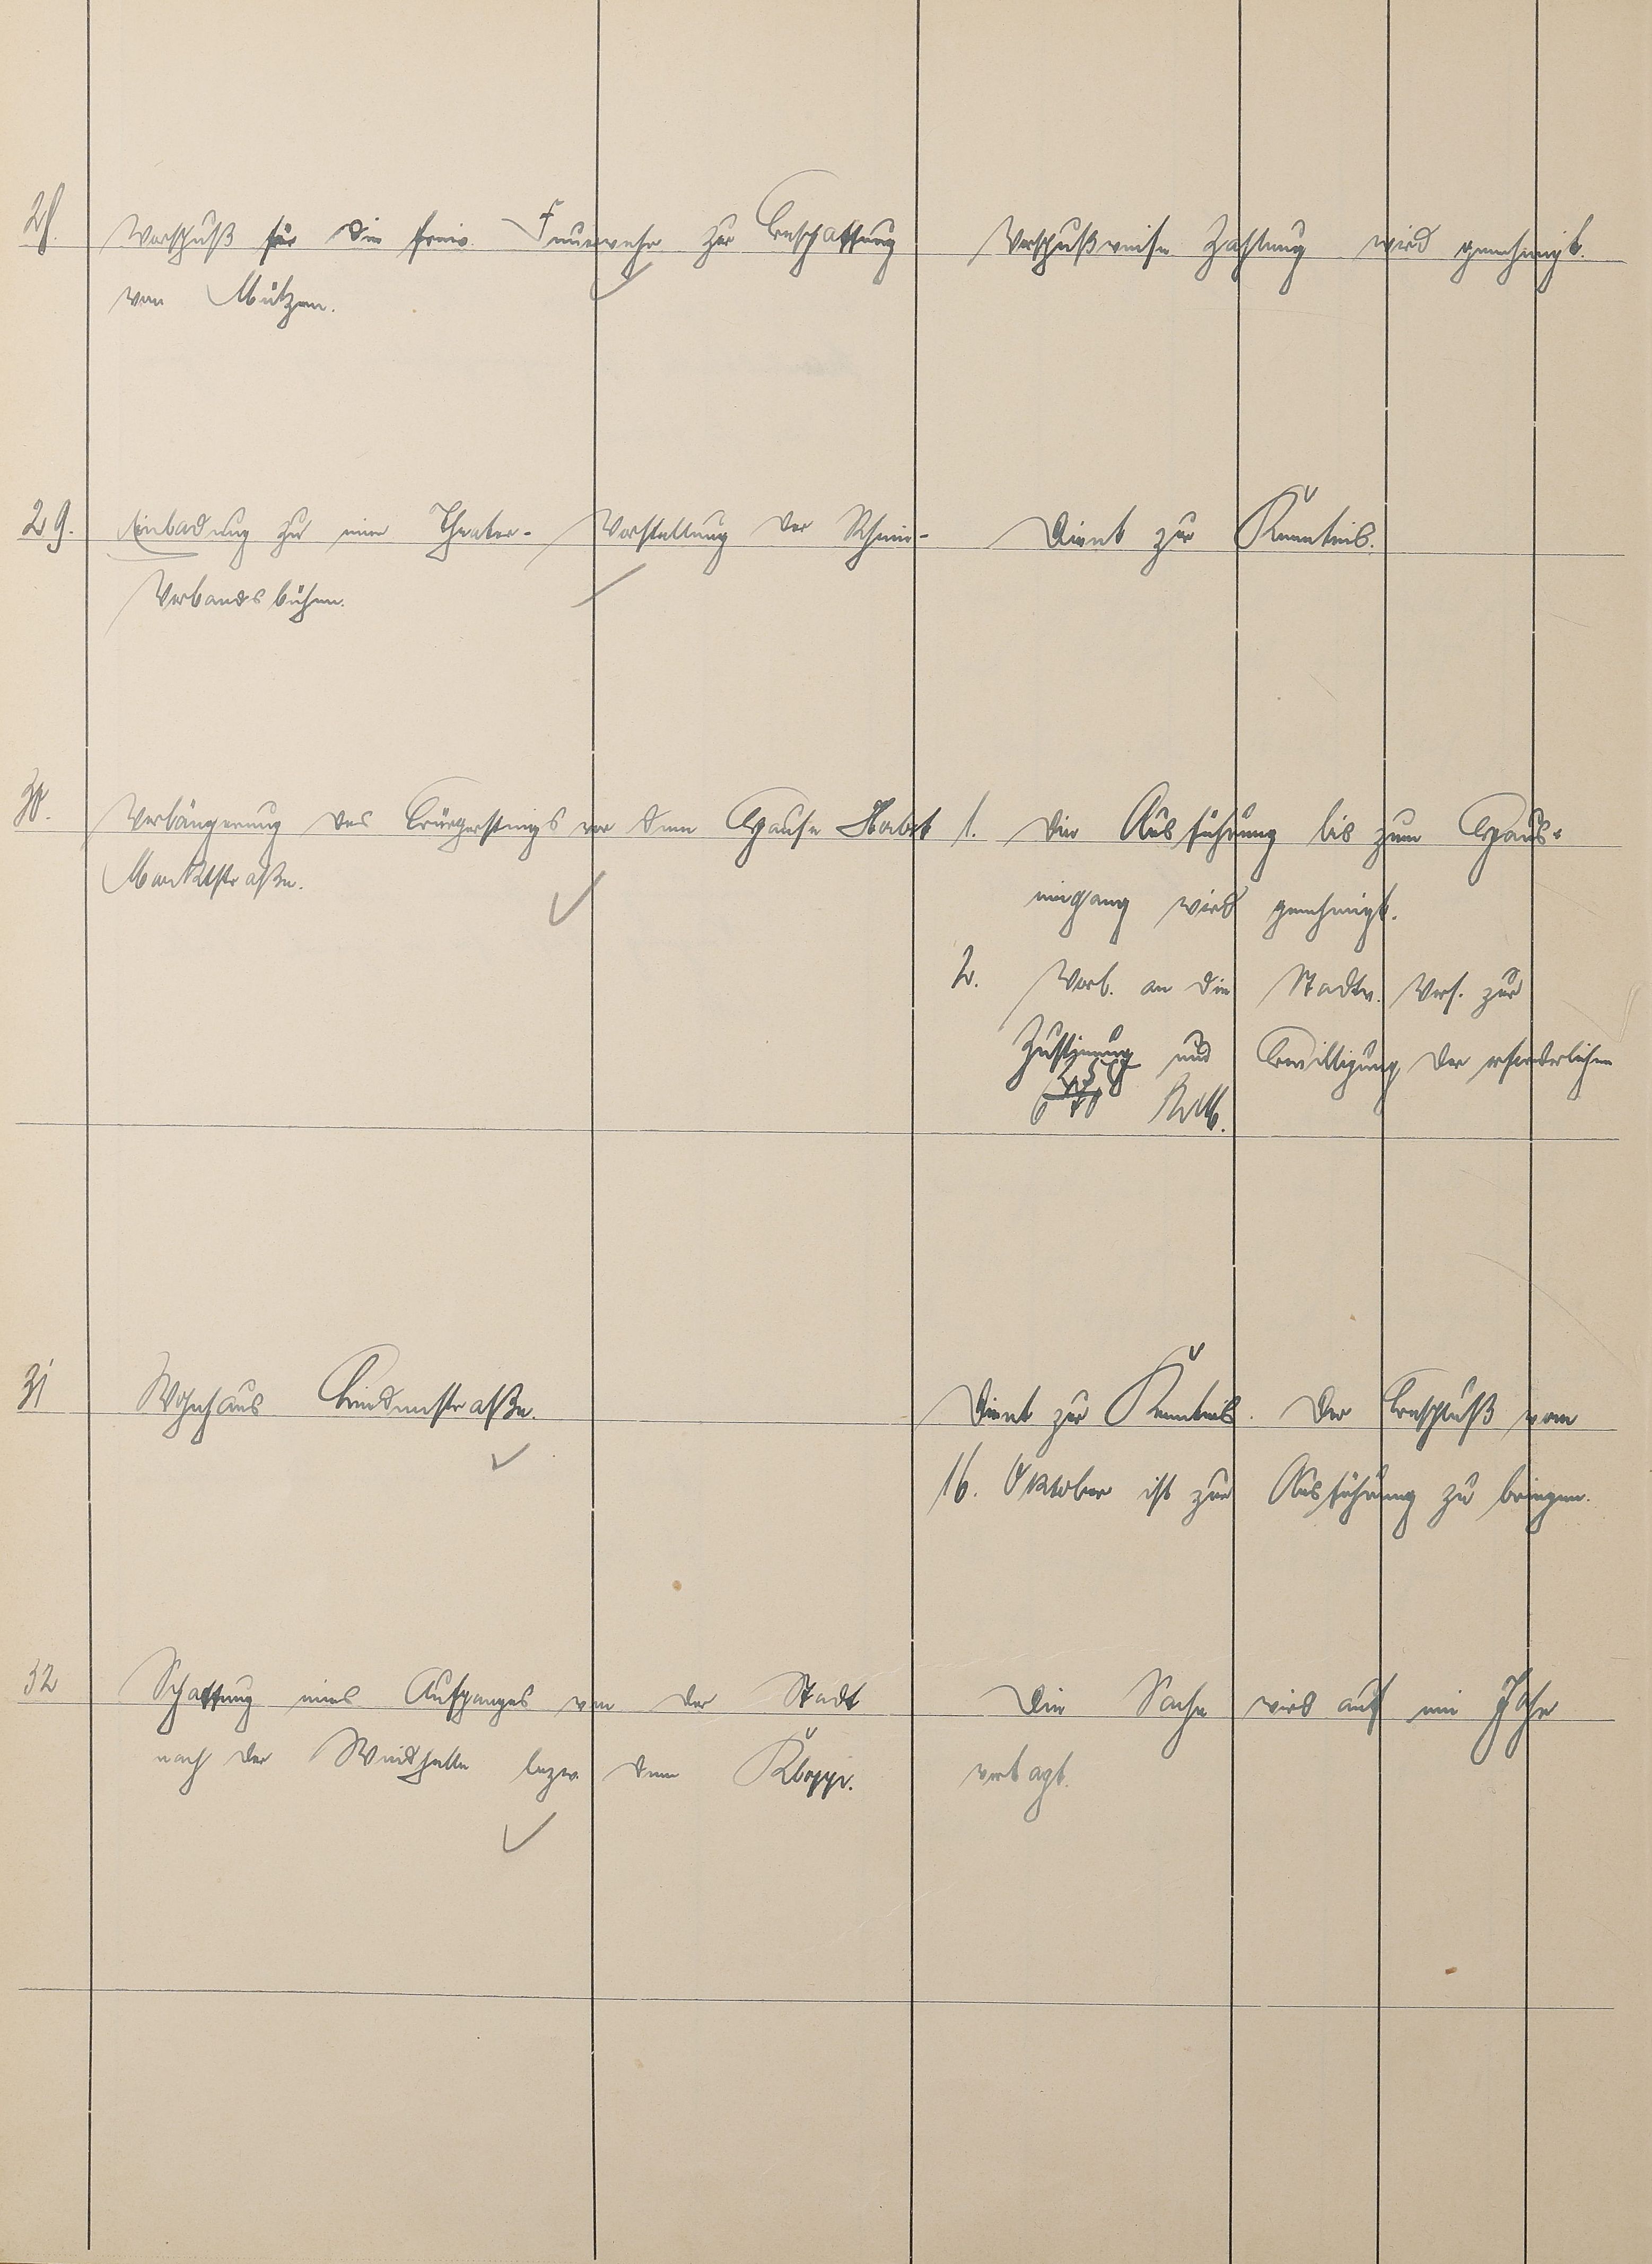 28.
Vorschuß für die freiw. Feuerwehr zur Beschaffung
von Mützen.
Vorschußweise Zahlung wird genehmigt.
29.
Einladung zu einer Theater- Vorstellung der Rhein-
Verbandsbühne.
Dient zur Kenntnis.
30.
Verlängerung des Bürgersteigs vor dem Hause
Marktstraße.
1. Die Ausführung bis zum Haus-
eingang wird genehmigt.
2. Vorl. an die Stadtv. Vers. zur
Zustimmung und Bewilligung der erforderlichen
RM.
31
Wohnhaus Lindenstraße.
Dient zur Kenntnis. Der Beschluß vom
16. Oktober ist zur Ausführung zu bringen.
32
Schaffung eines Aufganges von der Stadt
nach der bezw. dem Klopp.
Die Sache wird auf ein Jahr
vertagt.